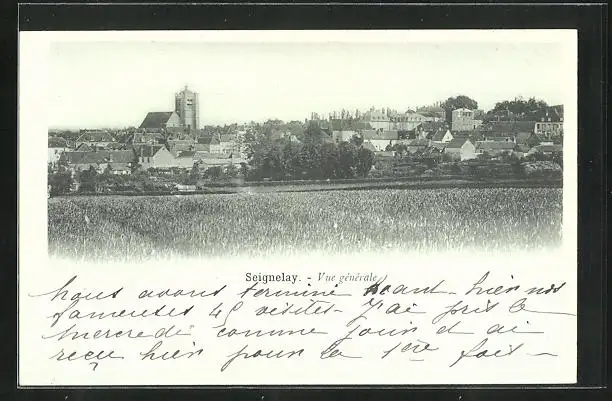 Seignelay. - Vue générale
Nous avons terminé avant-hier nos
fameuses 45 visites - J'ai pris le
Mercredi comme jour et ai
reçu hier pour la 1ère fois -